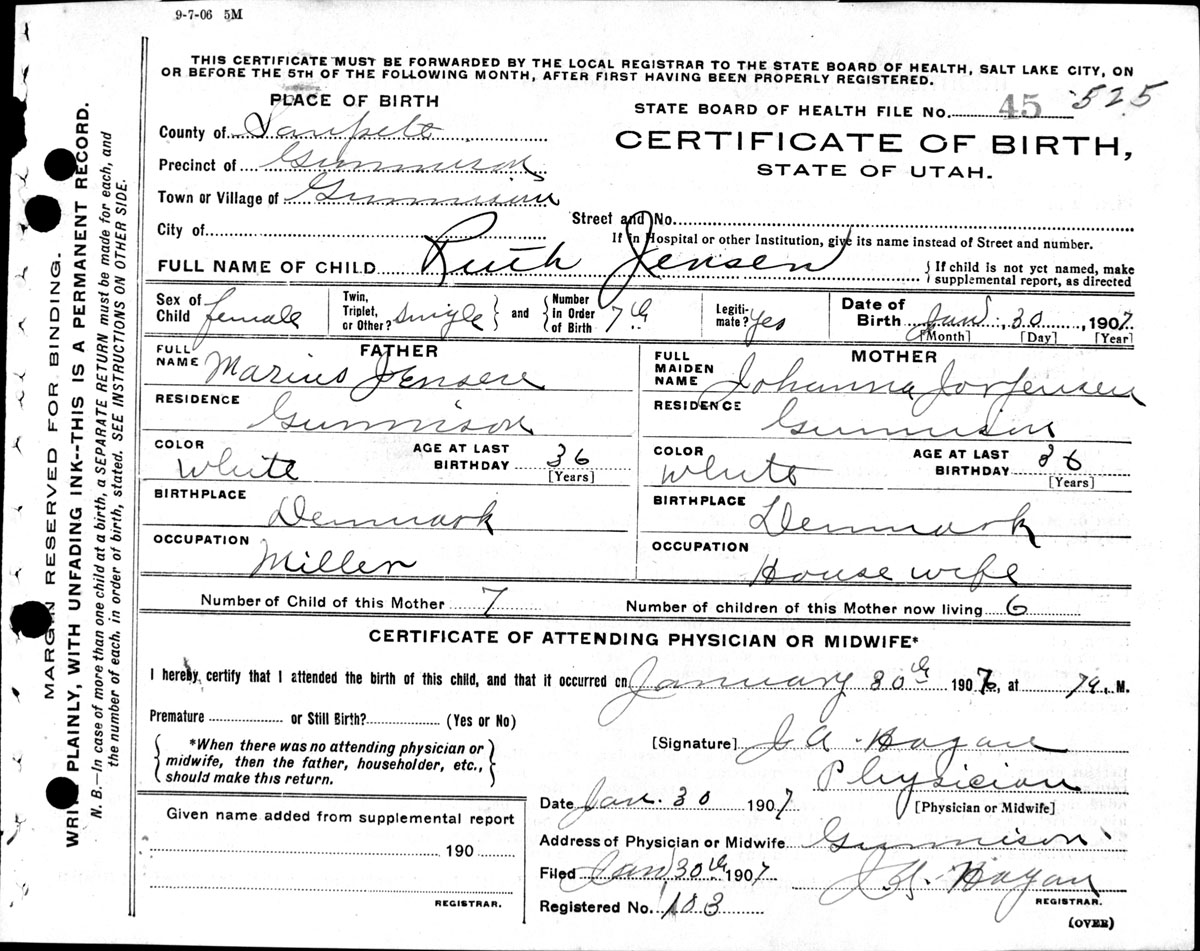 9-7-06 5M
THIS CERTIFICATE MUST BE FORWARDED BY THE LOCAL REGISTRAR TO THE STATE BOARD OF HEALTH, SALT LAKE CITY, ON
OR BEFORE THE 5TH OF THE FOLLOWING MONTH, AFTER FIRST HAVING BEEN PROPERLY REGISTERED.
MARGIN RESERVED FOR BINDING.
WRITE PLAINLY, WITH UNFADING INK--THIS IS A PERMANENT RECORD.
N. B.—In case of more than one child at a birth, a SEPARATE RETURN must be made for each, and
the number of each, in order of birth, stated. SEE INSTRUCTIONS ON OTHER SIDE.
PLACE OF BIRTH
County of Sanpete
Precinct of Gunnison
Town or Village of Gunnison
City of
STATE BOARD OF HEALTH FILE No. 45 525
CERTIFICATE OF BIRTH,
STATE OF UTAH.
Street and No.
If in Hospital or other Institution, give its name instead of Street and number.
FULL NAME OF CHILD Ruth Jensen
If child is not yet named, make
supplemental report, as directed
Sex of Child female
Twin, Triplet, or Other? single and Number in Order of Birth 7th
Legitimate? yes
Date of Birth Jan, 30, 1907
[Month] [Day] [Year]
FATHER
FULL NAME Marius Jensen
RESIDENCE Gunnison
COLOR White
AGE AT LAST BIRTHDAY 36
[Years]
BIRTHPLACE Denmark
OCCUPATION Miller
MOTHER
FULL MAIDEN NAME Johanna Jorgensen
RESIDENCE Gunnison
COLOR White
AGE AT LAST BIRTHDAY 36
[Years]
BIRTHPLACE Denmark
OCCUPATION House wife
Number of Child of this Mother 7 Number of children of this Mother now living 6
CERTIFICATE OF ATTENDING PHYSICIAN OR MIDWIFE*
I hereby certify that I attended the birth of this child, and that it occurred on January 30th 1907, at 7a. M.
Premature or Still Birth? (Yes or No)
*When there was no attending physician or
midwife, then the father, householder, etc.,
should make this return.
[Signature] J A. Hagan
Physician
[Physician or Midwife]
Date Jan. 30 1907
Address of Physician or Midwife Gunnison
Filed Jan 30th 1907 J A. Hagan
REGISTRAR.
Registered No. 103
(OVER)
Given name added from supplemental report
190
REGISTRAR.